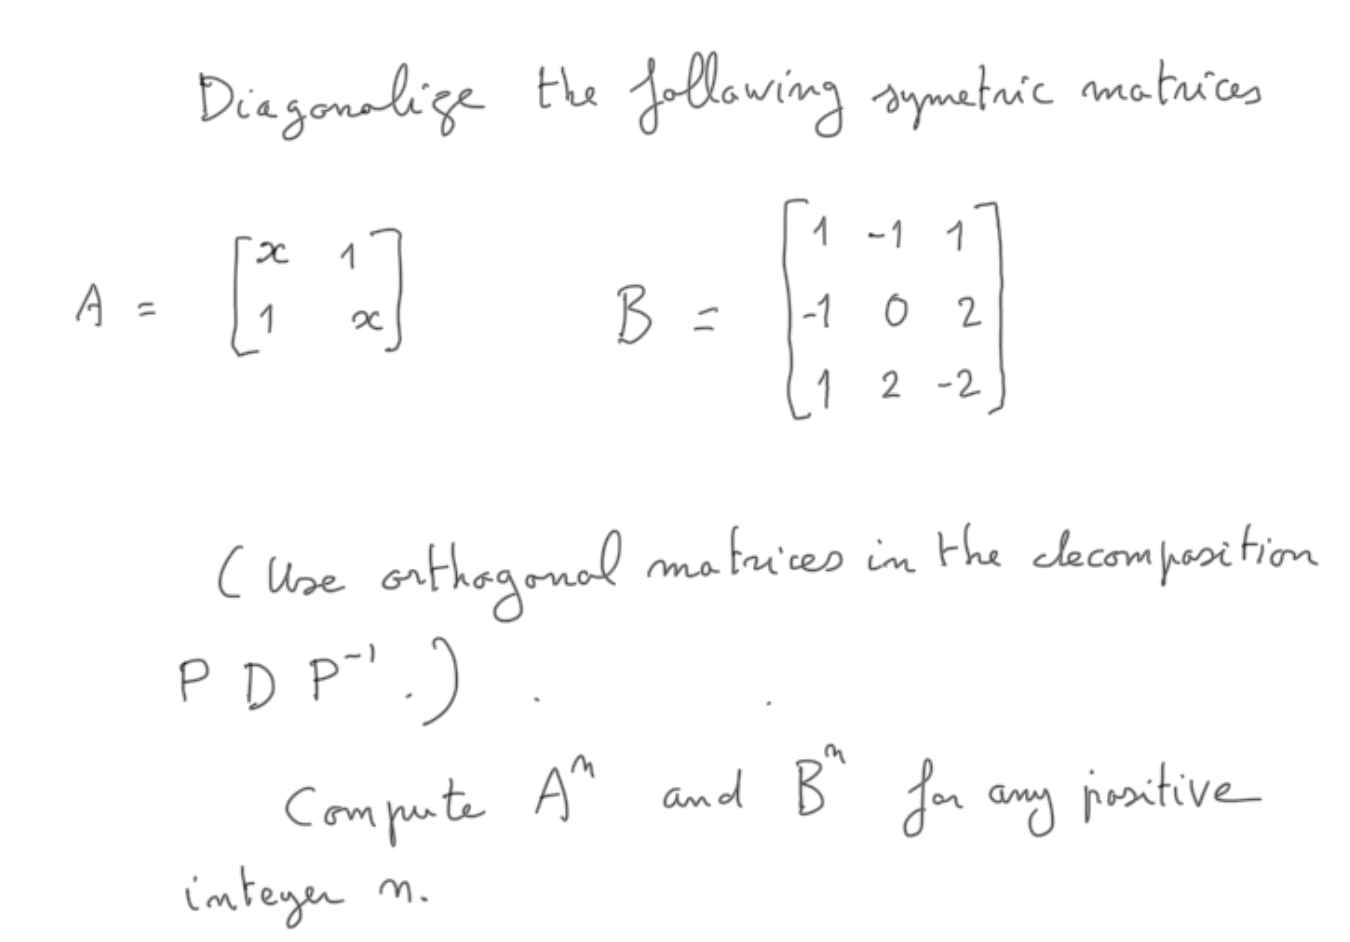 Diagonalize the following symetric matrices
A = [x 1
1 x] B = [1 -1 1
-1 0 2
1 2 -2]
(Use orthogonal matrices in the decomposition
P D P⁻¹.) .
Compute Aⁿ and Bⁿ for any positive
integer n.